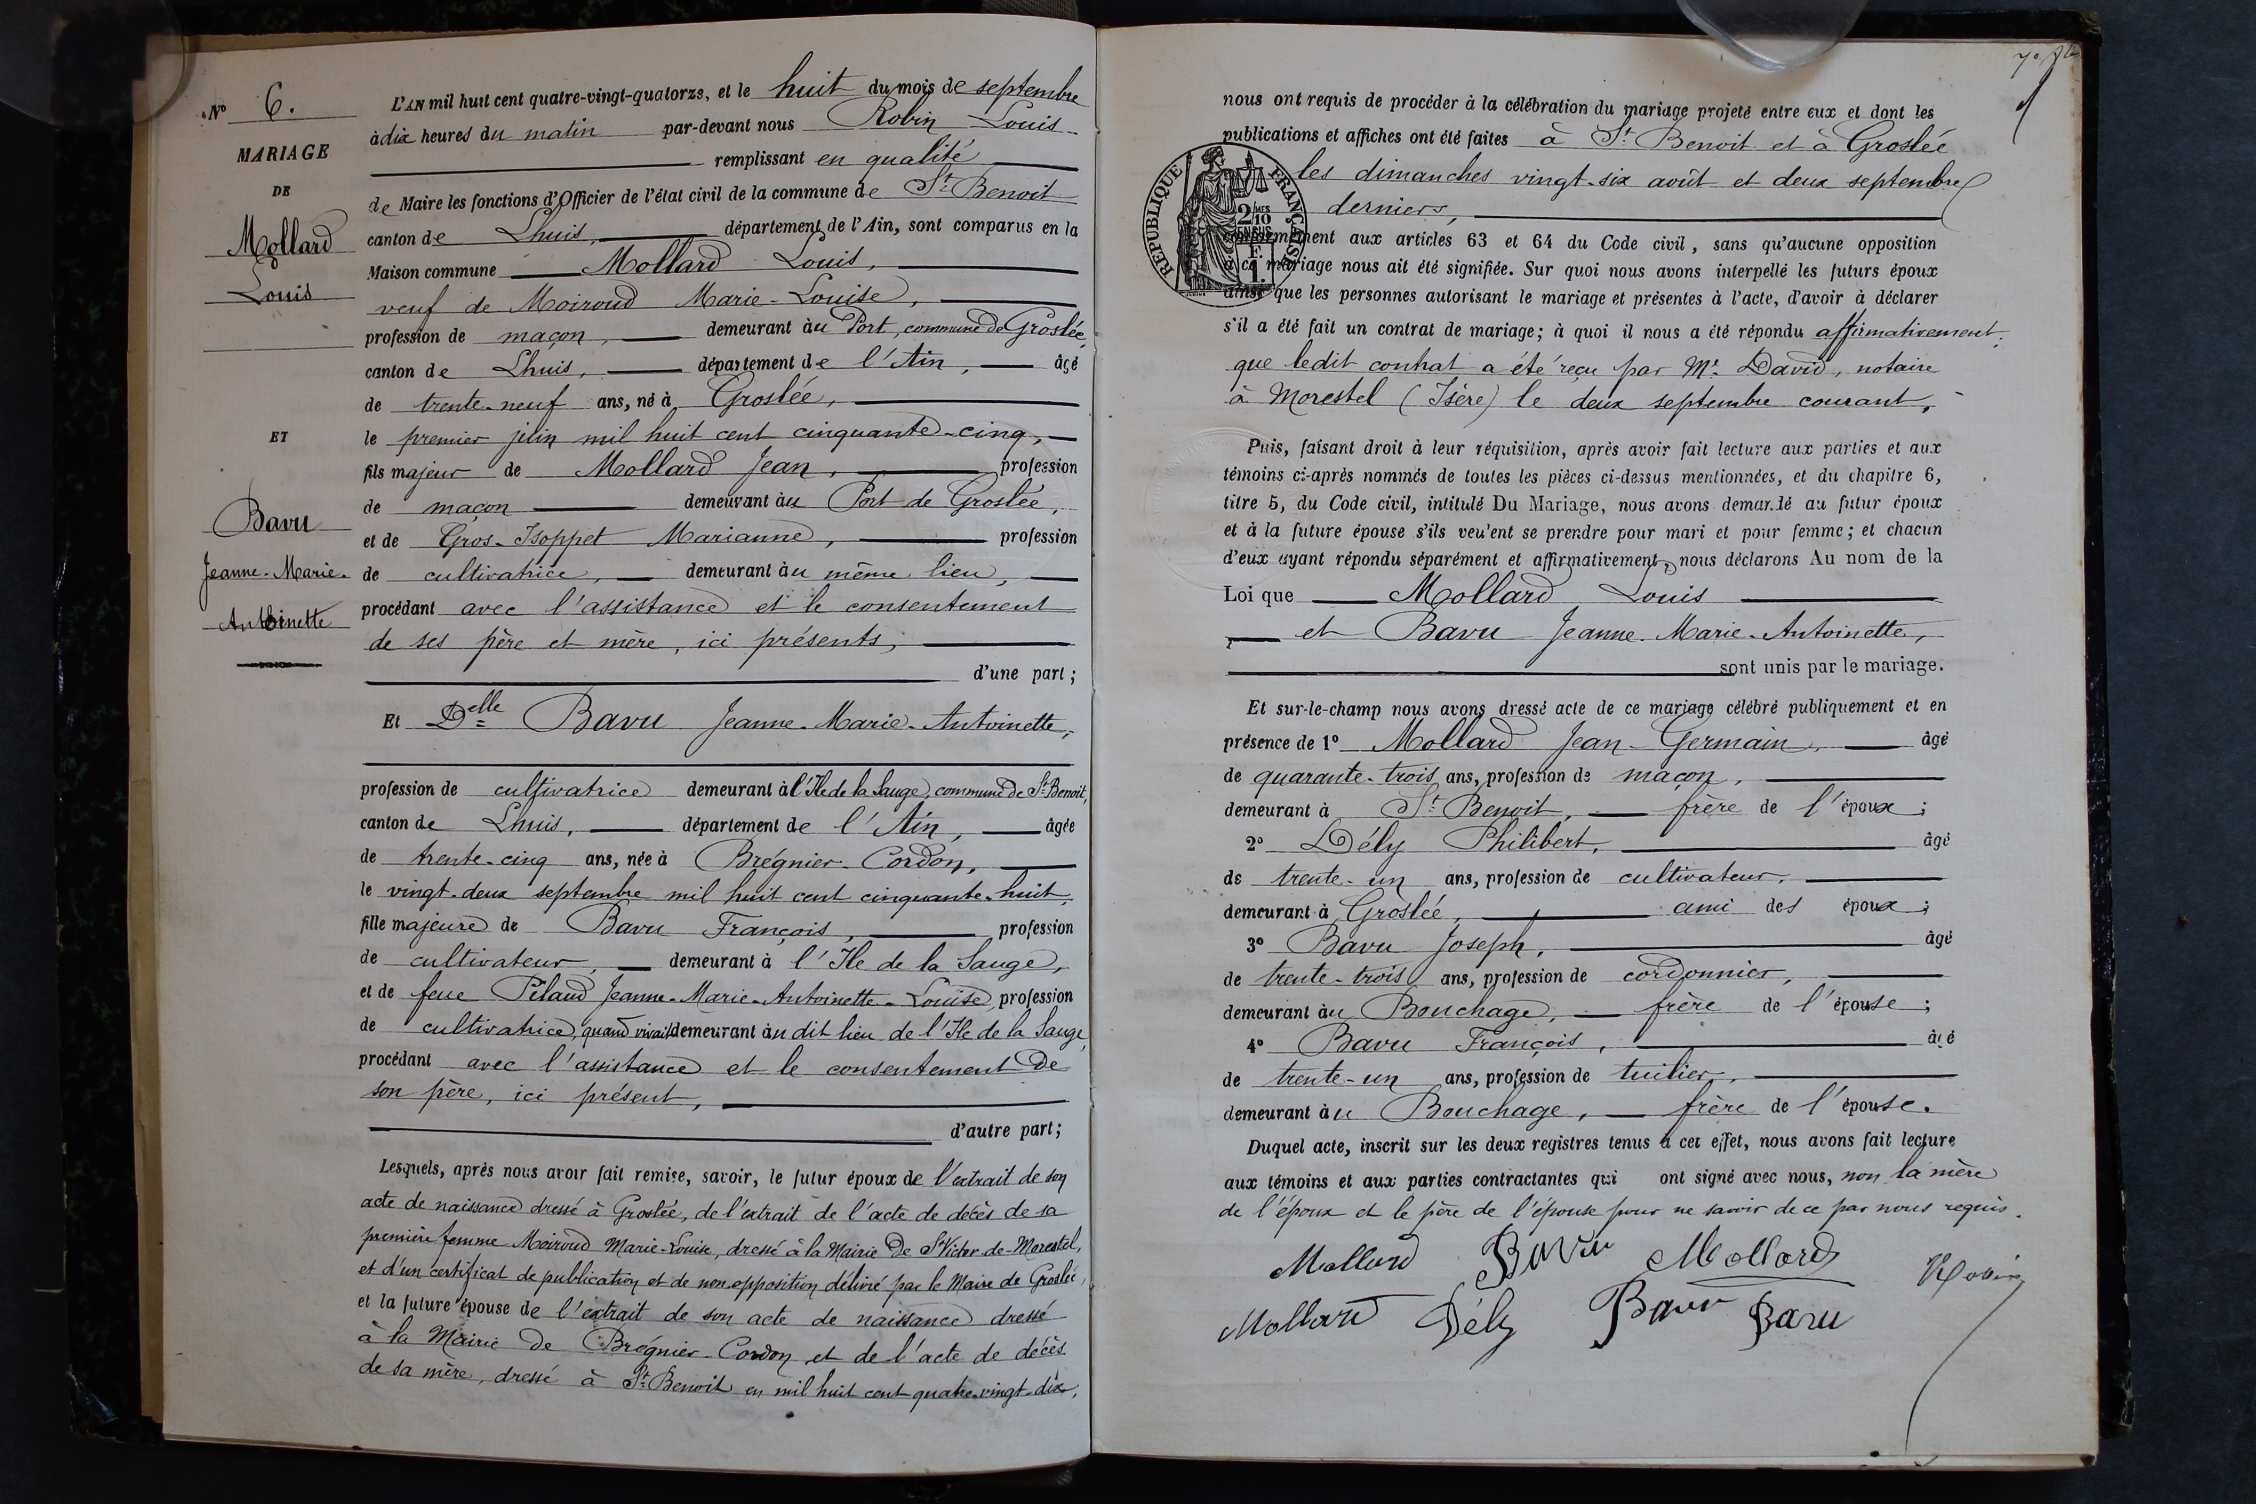 No 6.
MARIAGE
DE
Mollard
Louis
ET
Bavu
Jeanne-Marie-
Antoinette
L'AN mil huit cent quatre-vingt-quatorze, et le huit du mois de septembre
à dix heures du matin par-devant nous Robin Louis
remplissant en qualité
de Maire les fonctions d'Officier de l'état civil de la commune de St Benoit
canton de Lhuis, département de l'Ain, sont comparus en la
Maison commune Mollard Louis,
veuf de Moiroud Marie-Louise,
profession de maçon, demeurant au Port, commune de Groslée,
canton de Lhuis, département de l'Ain, âgé
de trente-neuf ans, né à Groslée,
le premier juin mil huit cent cinquante-cinq,
fils majeur de Mollard Jean, profession
de maçon demeurant au Port de Groslée,
et de Gros-Isoppet Marianne, profession
de cultivatrice, demeurant au même lieu,
procédant avec l'assistance et le consentement
de ses père et mère, ici présents,
d'une part;
Et Delle Bavu Jeanne-Marie-Antoinette,
profession de cultivatrice demeurant à l'Ile de la Sauge, commune de St Benoit,
canton de Lhuis, département de l'Ain, âgée
de trente-cinq ans, née à Brégnier-Cordon,
le vingt-deux septembre mil huit cent cinquante-huit,
fille majeure de Bavu François, profession
de cultivateur, demeurant à l'Ile de la Sauge,
et de feue Pélaud Jeanne-Marie-Antoinette-Louise, profession
de cultivatrice, quand vivait demeurant au dit lieu de l'Ile de la Sauge,
procédant avec l'assistance et le consentement de
son père, ici présent,
d'autre part;
Lesquels, après nous avoir fait remise, savoir, le futur époux de l'extrait de son
acte de naissance dressé à Groslée, de l'extrait de l'acte de décès de sa
première femme Moiroud Marie-Louise, dressé à la Mairie de St Victor-de-Morestel,
et d'un certificat de publication et de non opposition délivré par le Maire de Groslée,
et la future épouse de l'extrait de son acte de naissance dressé
à la Mairie de Brégnier-Cordon et de l'acte de décès
de sa mère, dressé à St Benoit en mil huit cent quatre-vingt-dix,
nous ont requis de procéder à la célébration du mariage projeté entre eux et dont les
publications et affiches ont été faites à St Benoit et à Groslée
les dimanches vingt-six août et deux septembre
derniers,
REPUBLIQUE FRANÇAISE
2/10 MES EN SUS
1 F.
conformément aux articles 63 et 64 du Code civil, sans qu'aucune opposition
à ce mariage nous ait été signifiée. Sur quoi nous avons interpellé les futurs époux
ainsi que les personnes autorisant le mariage et présentes à l'acte, d'avoir à déclarer
s'il a été fait un contrat de mariage; à quoi il nous a été répondu affirmativement.
que ledit contrat a été reçu par Me David, notaire
à Morestel (Isère) le deux septembre courant,
Puis, faisant droit à leur réquisition, après avoir fait lecture aux parties et aux
témoins ci-après nommés de toutes les pièces ci-dessus mentionnées, et du chapitre 6,
titre 5, du Code civil, intitulé Du Mariage, nous avons demandé au futur époux
et à la future épouse s'ils veulent se prendre pour mari et pour femme; et chacun
d'eux ayant répondu séparément et affirmativement, nous déclarons Au nom de la
Loi que Mollard Louis
et Bavu Jeanne-Marie-Antoinette,
sont unis par le mariage.
Et sur-le-champ nous avons dressé acte de ce mariage célébré publiquement et en
présence de 1o Mollard Jean-Germain, âgé
de quarante-trois ans, profession de maçon,
demeurant à St Benoit, frère de l'époux;
2o Dély Philibert, âgé
de trente-un ans, profession de cultivateur,
demeurant à Groslée, ami des époux;
3o Bavu Joseph, âgé
de trente-trois ans, profession de cordonnier,
demeurant au Bouchage, frère de l'épouse;
4o Bavu François, âgé
de trente-un ans, profession de tuilier,
demeurant au Bouchage, frère de l'épouse.
Duquel acte, inscrit sur les deux registres tenus à cet effet, nous avons fait lecture
aux témoins et aux parties contractantes qui ont signé avec nous, non la mère
de l'époux et le père de l'épouse pour ne savoir de ce par nous requis.
Mollard Bavu Mollard Robin
Mollard Dély Bavu Bavu